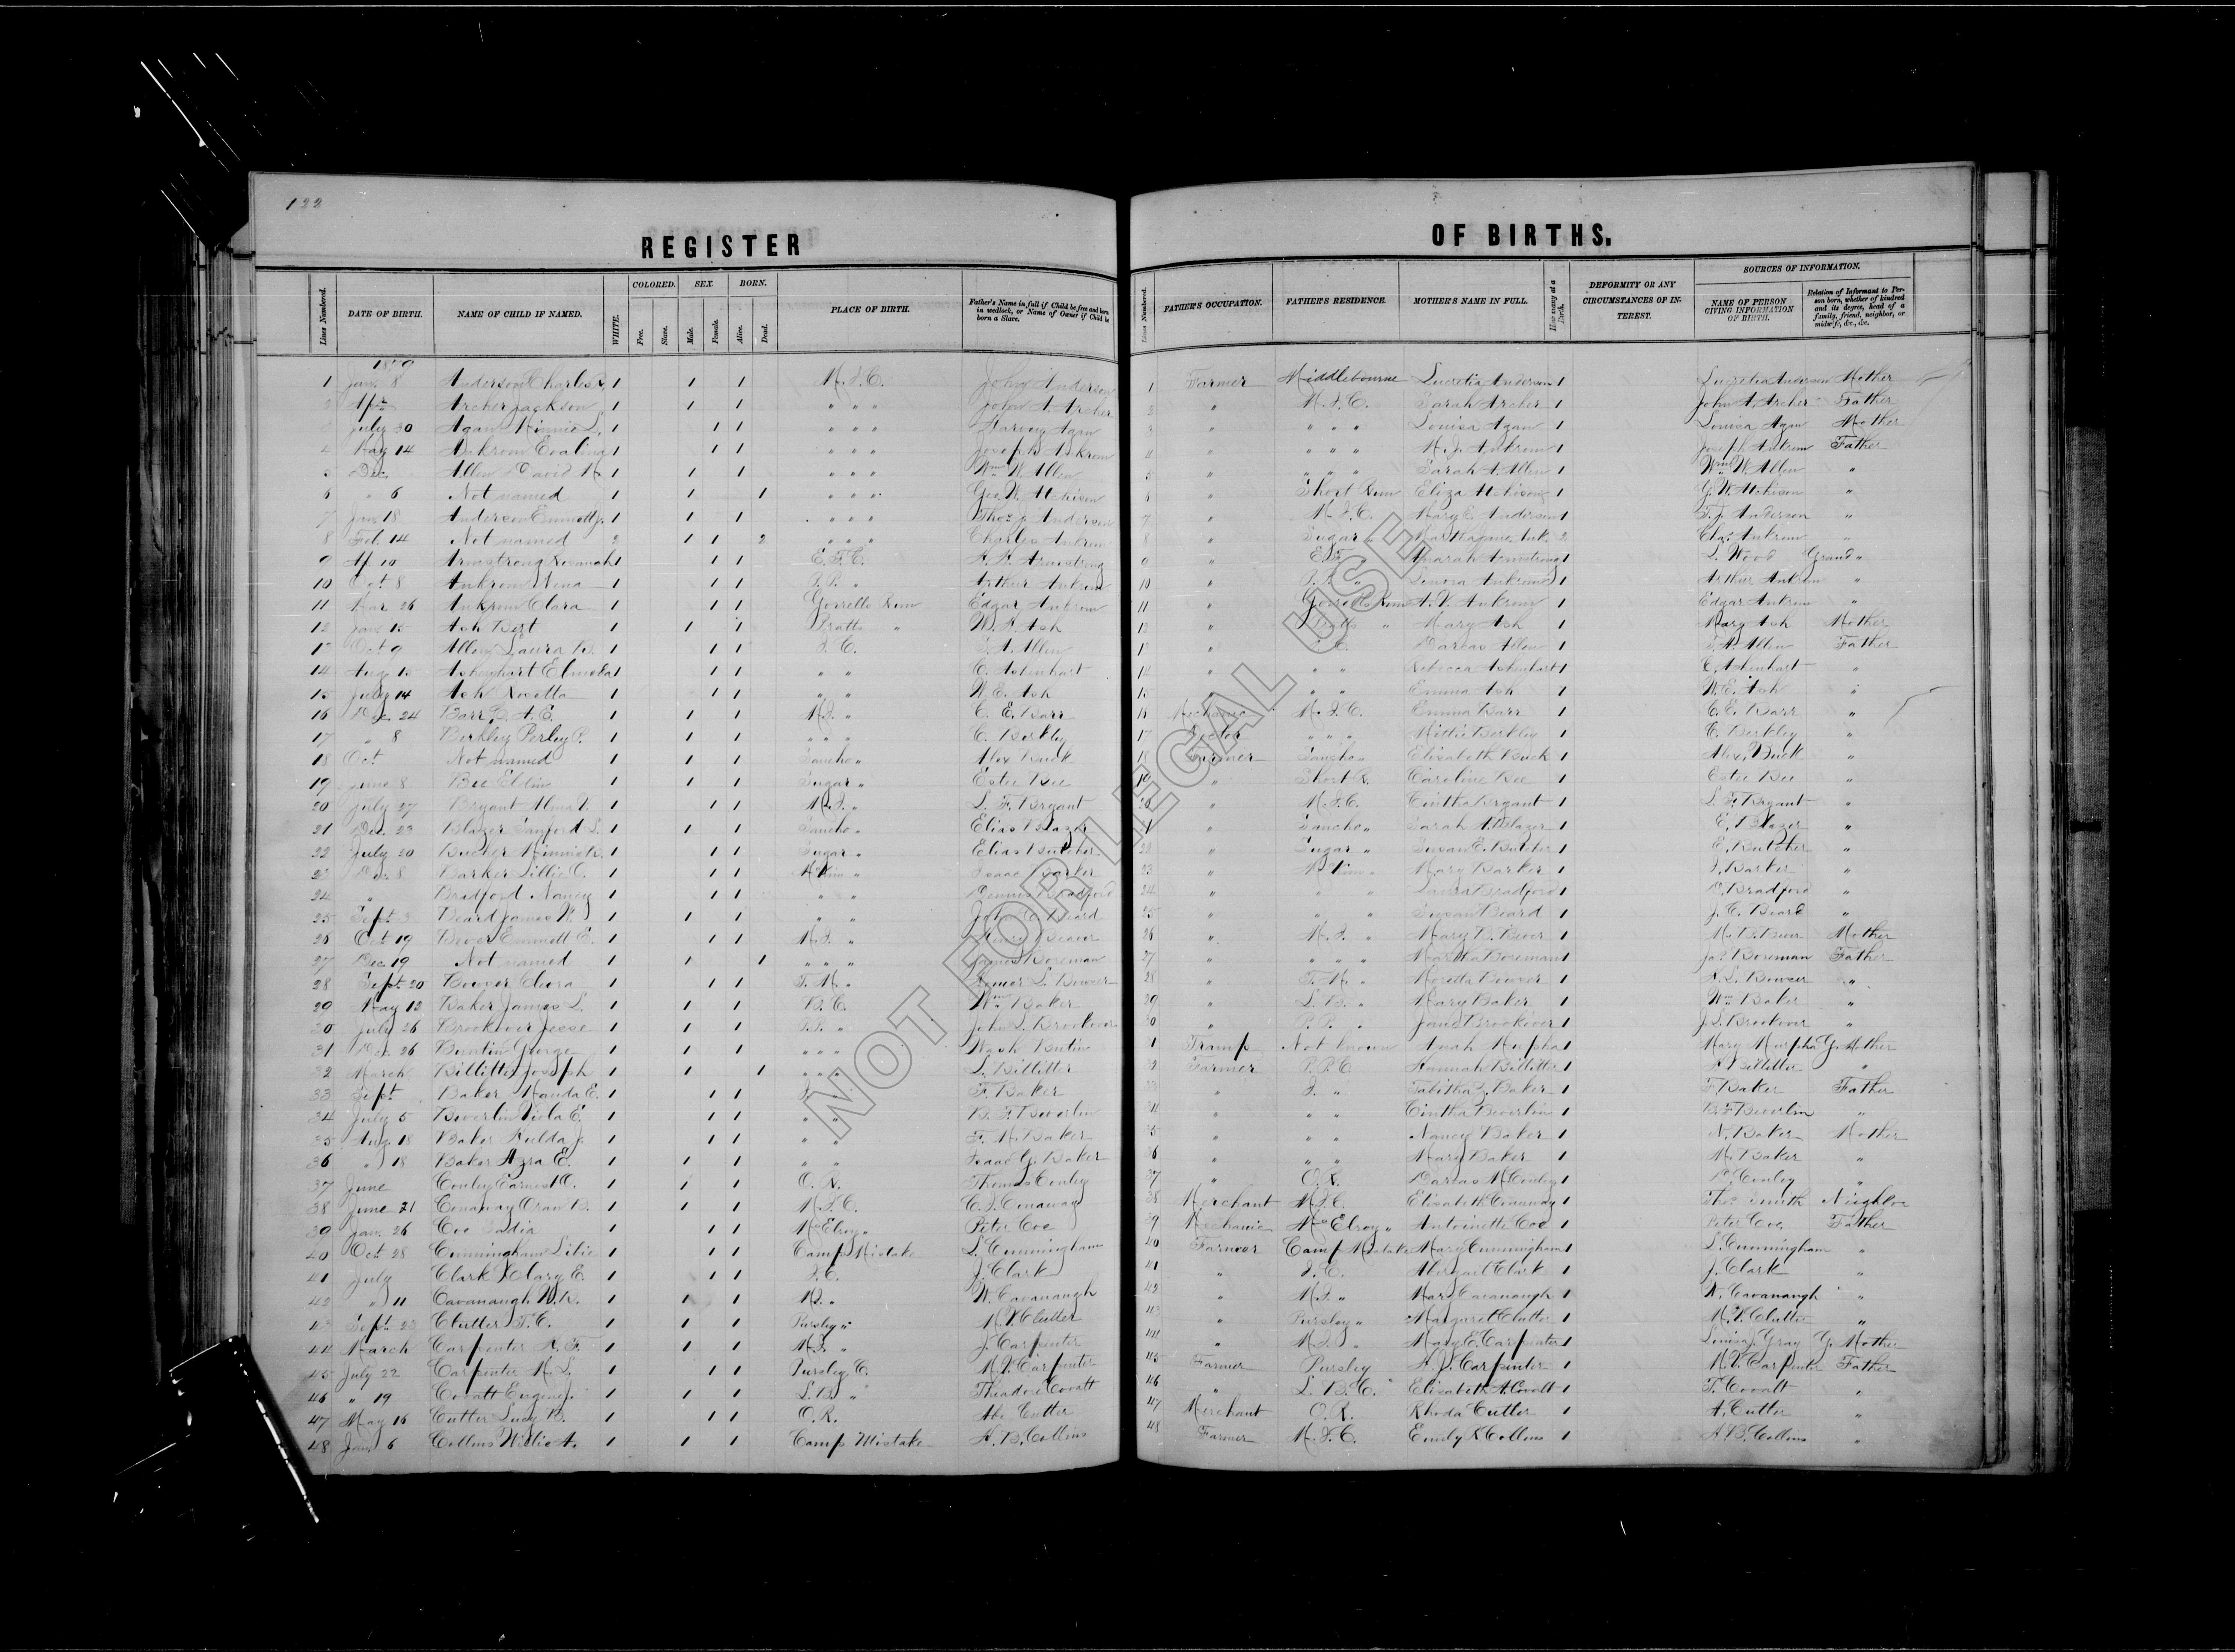 122
REGISTER OF BIRTHS.
Lines Numbered. DATE OF BIRTH. NAME OF CHILD IF NAMED. WHITE. COLORED. Free. Slave. SEX. Male. Female. BORN. Alive. Dead. PLACE OF BIRTH. Father's Name in full if Child be free and born in wedlock, or Name of Owner if Child be born a Slave. Lines Numbered. FATHER'S OCCUPATION. FATHER'S RESIDENCE. MOTHER'S NAME IN FULL. How many at a Birth. DEFORMITY OR ANY CIRCUMSTANCES OF INTEREST. SOURCES OF INFORMATION. NAME OF PERSON GIVING INFORMATION OF BIRTH. Relation of Informant to Person born, whether of kindred and its degree, head of a family, friend, neighbor, or midwife, &c., &c.
1879
1 Jan. 8 Anderson Charles 1 1 1 M.I.C. John Anderson 1 Farmer Middlebourne Lucretia Anderson 1 Lucretia Anderson Mother
2 Apr Archer Jackson 1 1 1 " " " John A. Archer 2 " M.I.C. Sarah Archer 1 John A. Archer Father
3 July 30 Agan Minnie L. 1 1 1 " " " Harvey Agan 3 " " " " Louisa Agan 1 Louisa Agan Mother
4 May 14 Ankrom Evaline 1 1 1 " " " Joseph Ankrom 4 " " " " M. J. Ankrom 1 Joseph Ankrom Father
5 Dec. Allen David M 1 1 1 " " " Wm W. Allen 5 " " " " Sarah A. Allen 1 Wm W. Allen "
6 " 6 Not named 1 1 1 " " " Geo. W. Atchison 6 " Short Run Eliza Atchison 1 G. W. Atchison "
7 Jan. 18 Anderson Emmett J. 1 1 1 " " " Thos J. Anderson 7 " M.I.C. Mary C. Anderson 1 T. J. Anderson "
8 Feb 14 Not named 2 1 1 2 " " " Charles Ankrom 8 " Sugar " Ank. 2 Chas Ankrom "
9 Ap 10 Armstrong Savanah 1 1 1 E.F.C. Armstrong 9 " E.F. " Armstrong 1 L. Wood Grand "
10 Oct 8 Ankrom Nena 1 1 1 P.P. " Arthur Ankrom 10 " P.P. " Ankrom 1 Arthur Ankrom "
11 Mar 26 Ankrom Clara 1 1 1 Gorrells Run Edgar Ankrom 11 " Gorrells Run A. V. Ankrom 1 Edgar Ankrom "
12 Jan 15 Ash Bert 1 1 1 Pratts " W. A. Ash 12 " Pratts " Mary Ash 1 Mary Ash Mother
13 Oct 9 Allen Laura B. 1 1 1 I.C. T. A. Allen 13 " I.C. Darcas Allen 1 T. A. Allen Father
14 Aug 15 Ashenhart Elmeda 1 1 1 " " C. Ashenhart 14 " " " Rebecca Ashenhart 1 C. Ashenhart "
15 July 14 Ash Rosetta 1 1 1 " " W. E. Ash 15 " " " Emma Ash 1 W. E. Ash "
16 Dec. 24 Barr C. A. E. 1 1 1 M.I. " C. E. Barr 16 Mechanic M.I.C. Emma Barr 1 C. E. Barr "
17 " 8 Berkley Perley P. 1 1 1 " " " C. Berkley 17 Doctor " " " Mittie Berkley 1 C. Berkley "
18 Oct Not named 1 1 1 Sancho " Alex Buck 18 Farmer Sancho " Elizabeth Buck 1 Alex. Buck "
19 June 8 Bee Eldin 1 1 1 Sugar " Estee Bee 19 " Short R. Caroline Bee 1 Estee Bee "
20 July 27 Bryant Alma V. 1 1 1 M.I. " L. F. Bryant 20 " M.I.C. Cintha Bryant 1 L. F. Bryant "
21 Dec. 23 Blazer Sanford L. 1 1 1 Sancho " Elias Blazer 21 " Sancho " Sarah A. Blazer 1 E. Blazer "
22 July 20 Butcher Minnie 1 1 1 Sugar " Elias Butcher 22 " Sugar " Susan E. Butcher 1 E. Butcher "
23 Dec. 8 Barker Lillie C. 1 1 1 McKim " Isaac Barker 23 " McKim " Mary Barker 1 I. Barker "
24 " Bradford Nancy 1 1 1 " " Dennis Bradford 24 " " " Laura Bradford 1 D. Bradford "
25 Sept. 3 Beard James W. 1 1 1 " " John C. Beard 25 " " " Susan Beard 1 J. C. Beard "
26 Oct. 19 Bever Emmett E. 1 1 1 M.I. " Henry Beaver 26 " M.I. " Mary B. Bever 1 M. B. Bever Mother
27 Dec. 19 Not named 1 1 1 " " " James Boreman 27 " " " " Martha Boreman 1 Jas Boreman Father
28 Sept. 20 Bowser Cleora 1 1 1 T.M. " Homer L. Bowser 28 " T.M. " Bowser 1 H. L. Bowser "
29 May 12 Baker James L. 1 1 1 B.C. Wm Baker 29 " L.B. " Mary Baker 1 Wm Baker "
30 July 26 Brookover Jesse 1 1 1 P.P. " John L. Brookover 30 " P.P. " Jane Brookover 1 J. L. Brookover "
31 Dec. 26 Buntin George 1 1 1 " " " Wash Butin 1 Tramp Not known Anah Murpha 1 Mary Murpha G. Mother
32 March Billitter Joseph 1 1 1 " " " L. Billitter 32 Farmer P.P.C. Hannah Billitter 1 H. Billitter "
33 Sept. Baker Manda E. 1 1 1 I. " F. Baker 33 " I. " Tabitha J. Baker 1 F. Baker Father
34 July 5 Beverlin Viola E. 1 1 1 " " B. F. Beverlin 34 " " " Cintha Beverlin 1 B. F. Beverlin "
35 Aug. 18 Baker Hulda J. 1 1 1 " " F. M. Baker 35 " " " Nancy Baker 1 N. Baker Mother
36 " 18 Baker Azra E. 1 1 1 " " Isaac G. Baker 36 " " " Mary Baker 1 M. Baker "
37 June Conley Earnest O. 1 1 1 O.R. Thomas Conley 37 " O.R. Darcas M. Conley 1 D. Conley "
38 June 21 Conaway Oran B. 1 1 1 M.I.C. C. I. Conaway 38 Merchant M.I.C. Elizabeth Conaway 1 Thos Smith Neighbor
39 Jan. 26 Coe Sadia 1 1 1 McElroy " Peter Coe 39 Mechanic McElroy " Antoinette Coe 1 Peter Coe Father
40 Oct. 28 Cunningham Lilie 1 1 1 Camp Mistake L. Cunningham 40 Farmer Camp Mistake Mary Cunningham 1 L. Cunningham "
41 July Clark Clary E. 1 1 1 I.C. J. Clark 41 " I.C. Abergail Clark 1 J. Clark "
42 " 11 Cavanaugh W. B. 1 1 1 M.I. " W. Cavanaugh 42 " M.I. " Mary Cavanaugh 1 W. Cavanaugh "
43 Sept. 23 Clutter T. C. 1 1 1 Pursley " M. V. Clutter 43 " Pursley " Margaret Clutter 1 M. V. Clutter "
44 March Carpenter A. F. 1 1 1 M.I. " J. Carpenter 44 " M.I. " Mary E. Carpenter 1 Louisa J. Gray G. Mother
45 July 22 Carpenter M. L. 1 1 1 Pursley C. M. V. Carpenter 45 Farmer Pursley Carpenter 1 M. V. Carpenter Father
46 " 19 Covatt Eugene J. 1 1 1 L.B. " Theadore Covatt 46 " L.B.C. Elizabeth A. Covalt 1 T. Covalt "
47 May 16 Cutter Lucy B. 1 1 1 O.R. Abe Cutter 47 Merchant O.R. Rhoda Cutter 1 A. Cutter "
48 Jan. 6 Collins Willie A. 1 1 1 Camp Mistake A. B. Collins 48 Farmer M.I.C. Emily R Collins 1 A. B. Collins "
NOT FOR LEGAL USE